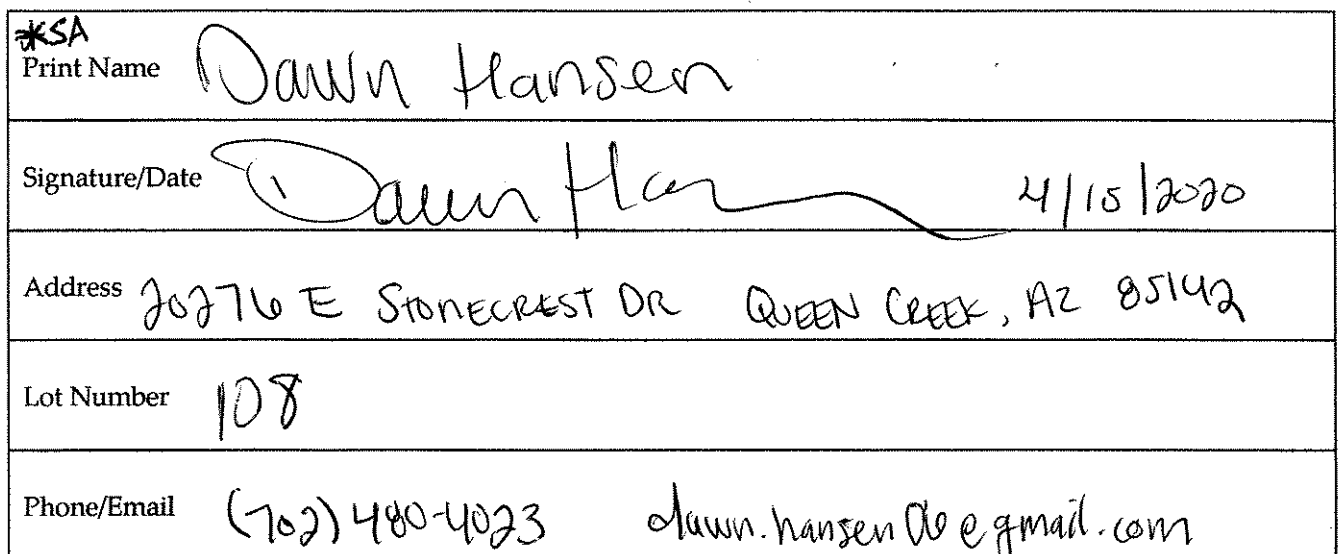 *KSA
Print Name Dawn Hansen
Signature/Date Dawn Han 4/15/2020
Address 20276 E STONECREST DR QUEEN CREEK, AZ 85142
Lot Number 108
Phone/Email (702) 480-4023 dawn.hansen06@gmail.com